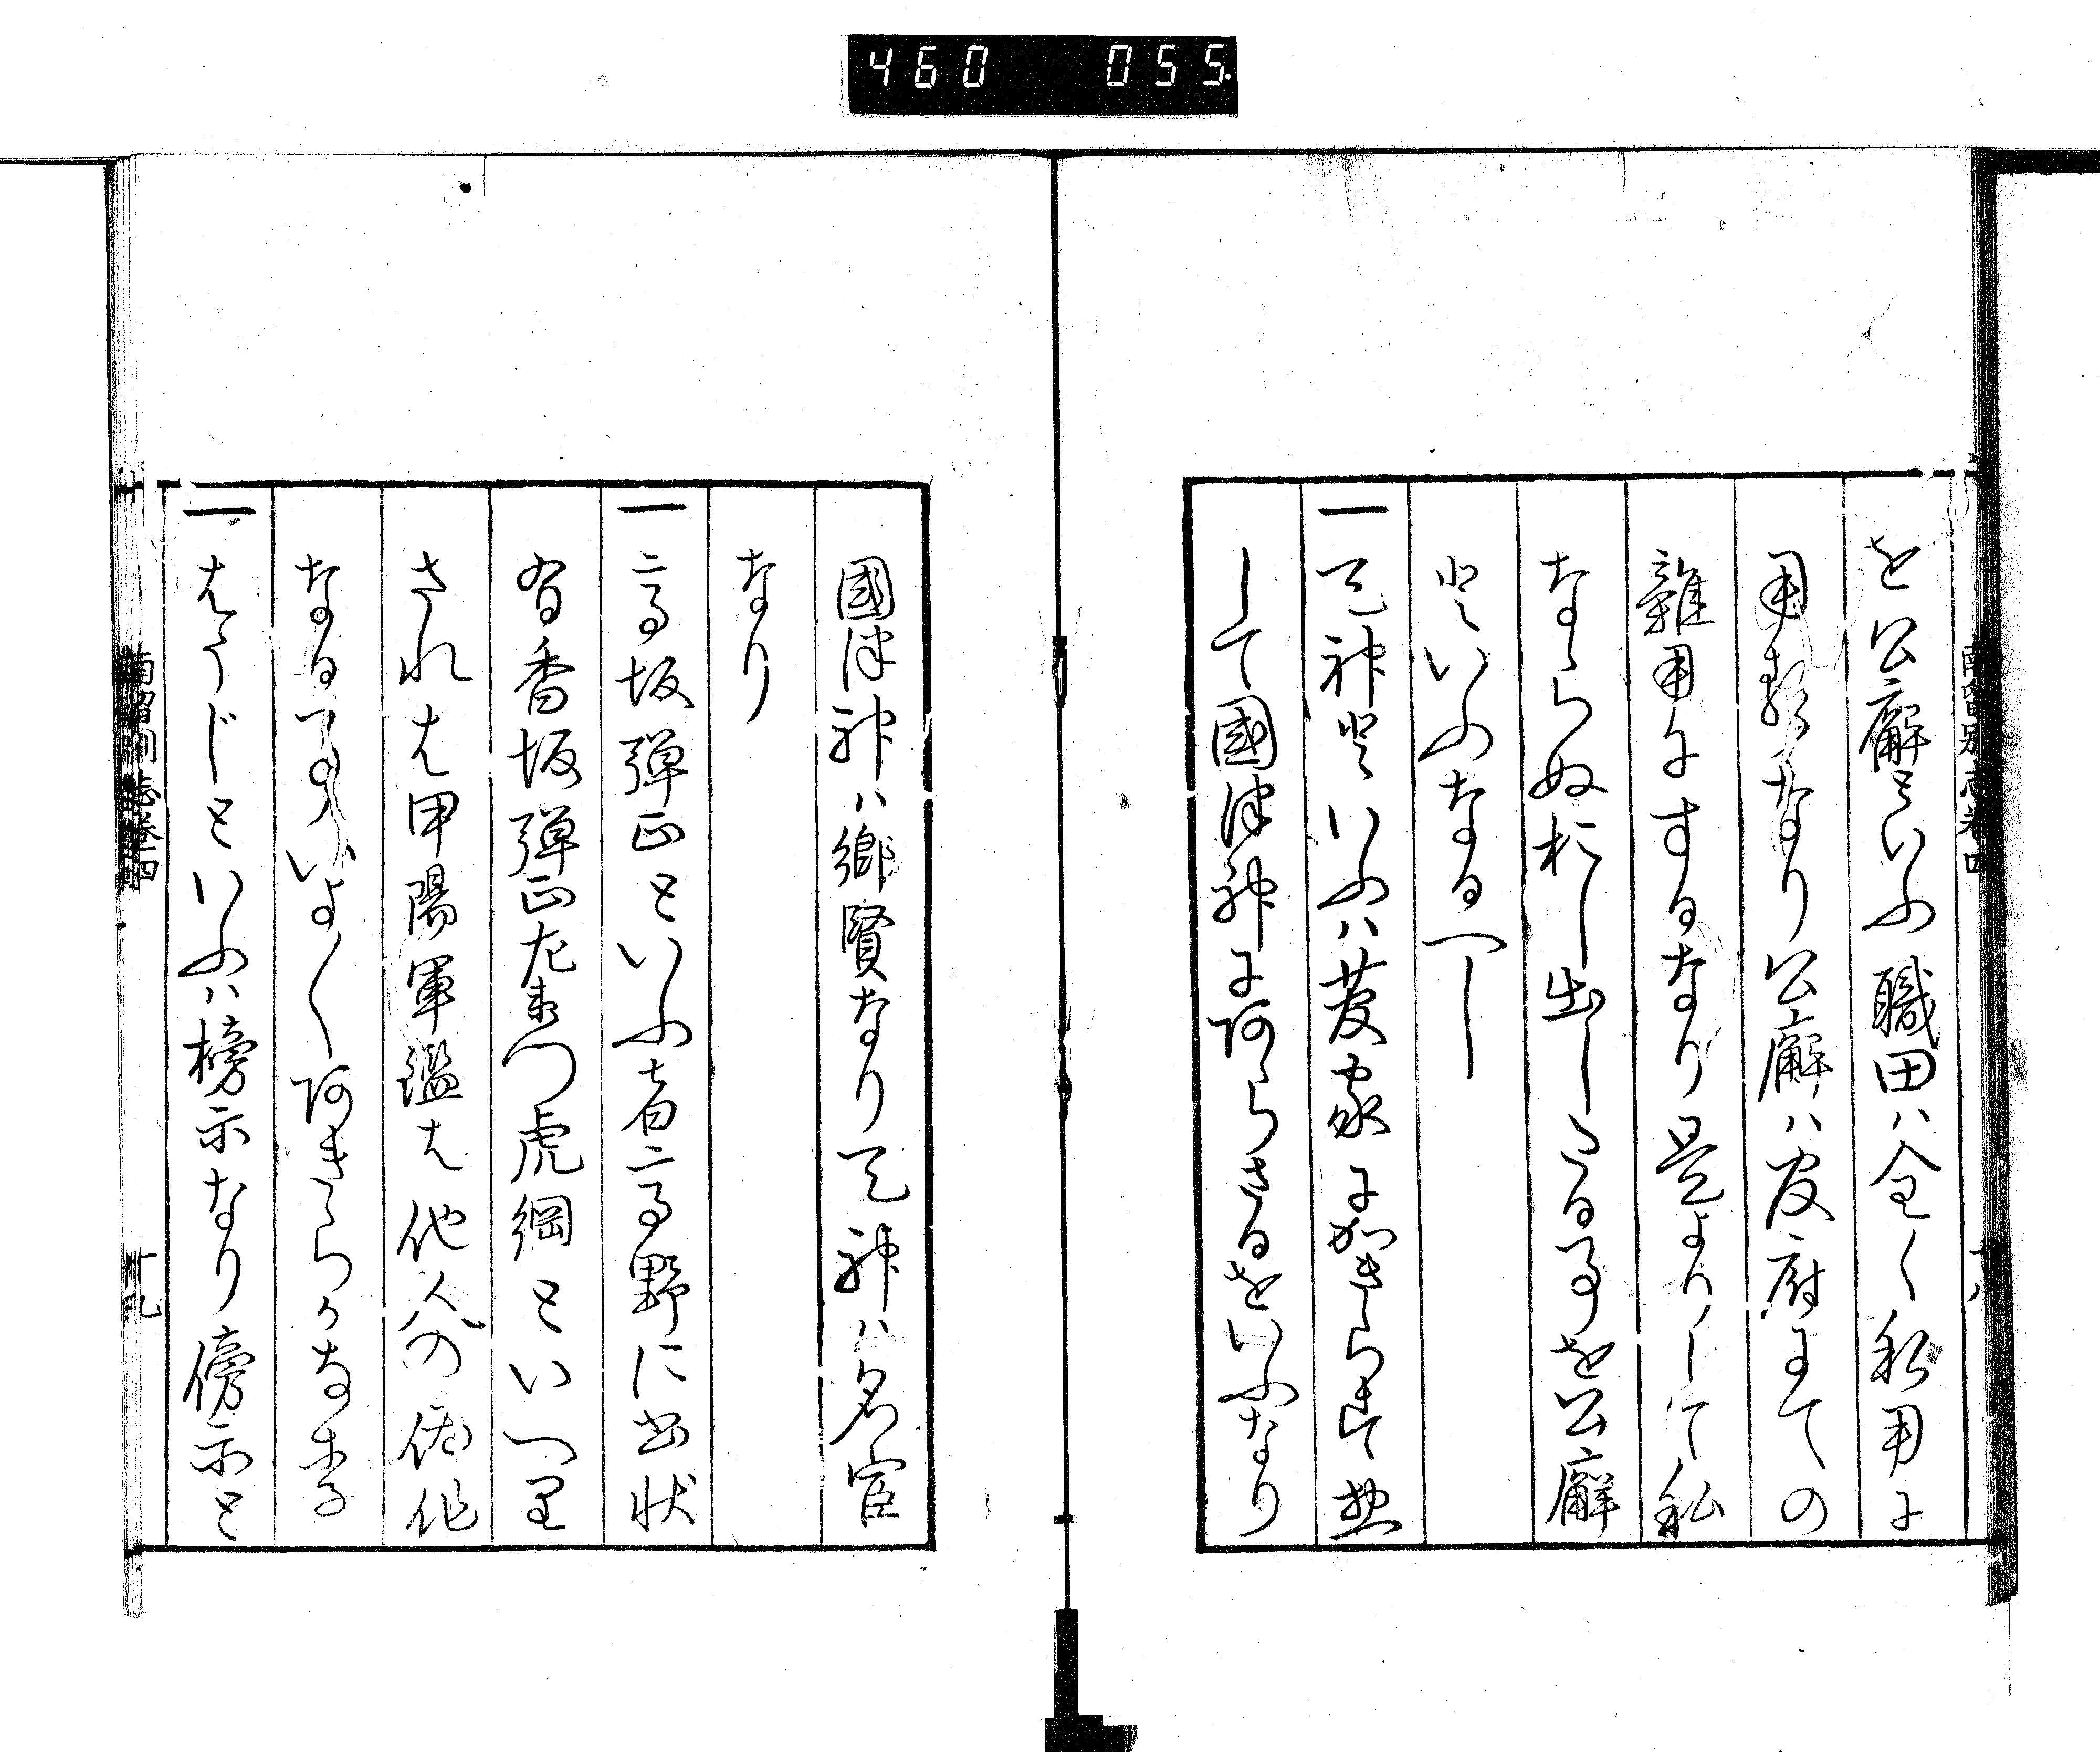 460 055
南留別志卷四
十八
を公廨といふ職田ハ全く私用に
用るなり公廨ハ官府にての
雜用にするなり是よりして私
ならぬおし出したる事を公廨
といふなるへし
一天神といふハ菅家にかきらす惣
して國津神にあらさるをいふなり
國津神ハ鄉賢なり天神ハ名宦
なり
一高坂弾正といふ者高野に書状
有香坂弾正左衛門虎綱といへり
されは甲陽軍鑑は他人の偽作
なる事いよ〱あきらかなり
一はうじといふハ榜示なり傍示と
南留別志卷四
十九